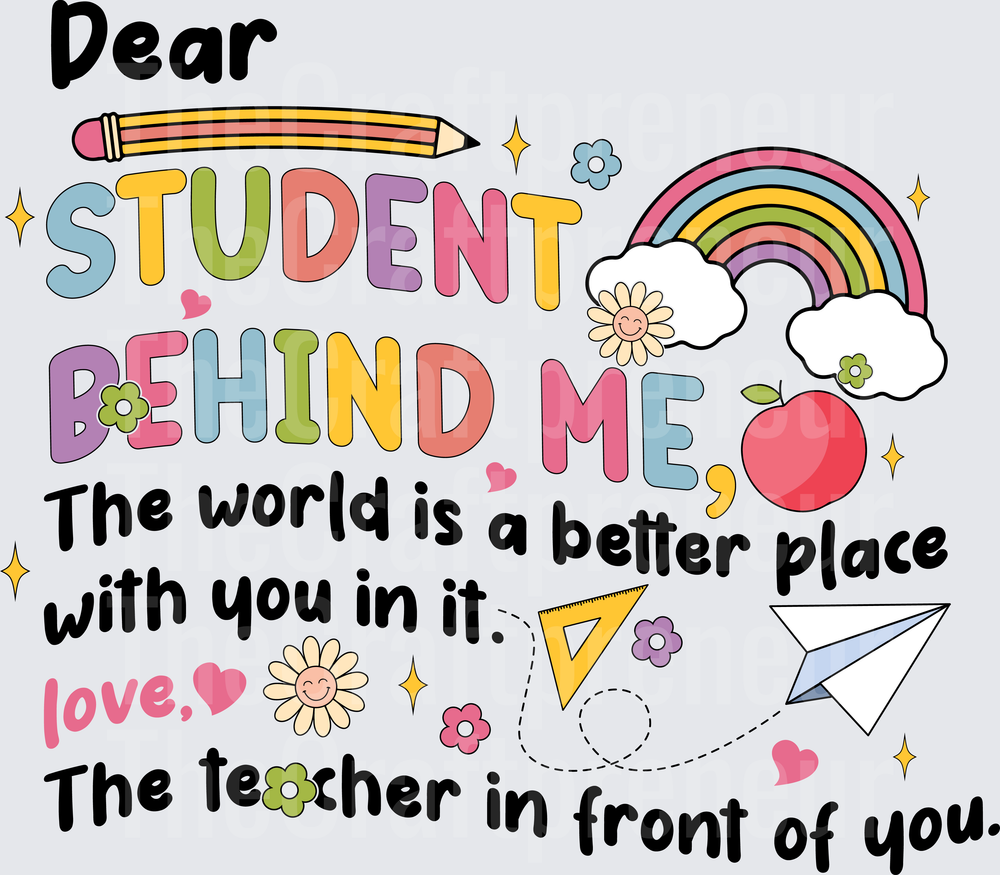 Dear
STUDENT
BEHIND ME,
The world is a better place
with you in it.
love,
The teacher in front of you.
TheCraftpreneur